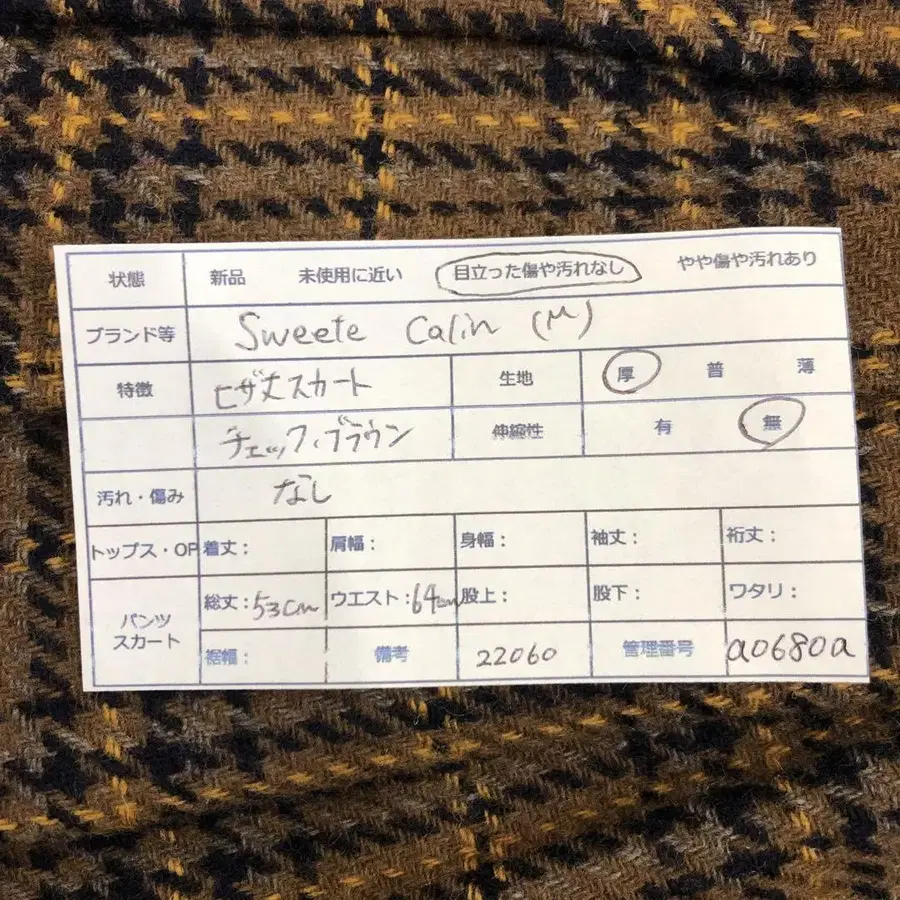 状態 新品 未使用に近い 目立った傷や汚れなし やや傷や汚れあり
ブランド等 Sweete Calin (M)
特徴 ヒザ丈スカート 生地 厚 普 薄
チェック、ブラウン 伸縮性 有 無
汚れ・傷み なし
トップス・OP 着丈: 肩幅: 身幅: 袖丈: 裄丈:
パンツ スカート 総丈:53cm ウエスト:64cm 股上: 股下: ワタリ:
裾幅: 備考 22060 管理番号 a0680a